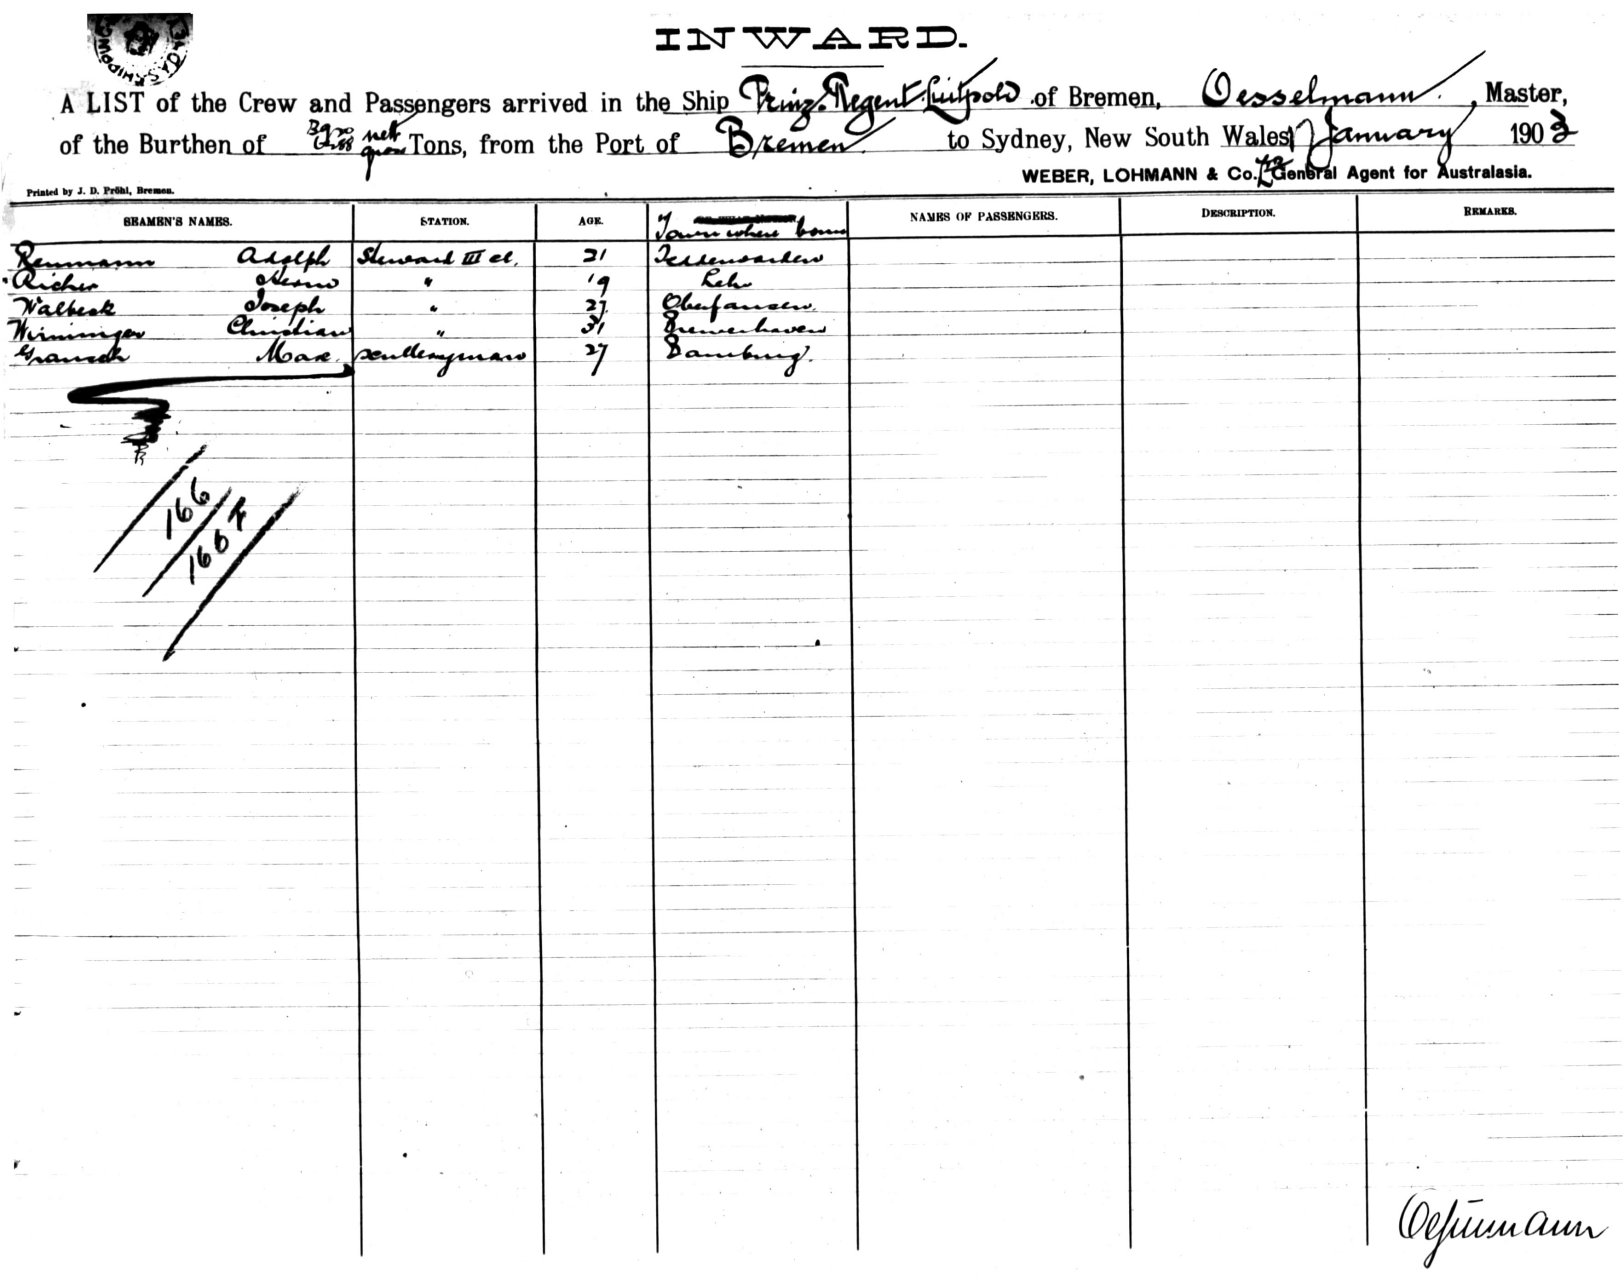 INWARD.
A LIST of the Crew and Passengers arrived in the Ship Prinz-Regent Luitpold of Bremen, Oesselmann, Master,
of the Burthen of nett Tons, from the Port of Bremen to Sydney, New South Wales, January 1903
WEBER, LOHMANN & Co. Ld General Agent for Australasia.
Printed by J. D. Pröhl, Bremen.
SEAMEN'S NAMES. STATION. AGE. Town where born NAMES OF PASSENGERS. DESCRIPTION. REMARKS.
Adolph Steward III cl. 21
" 19 Lehe
Walbeck Joseph " 27
Christian " 31 Bremerhaven
Max 27 Bamburg.
166
166 F